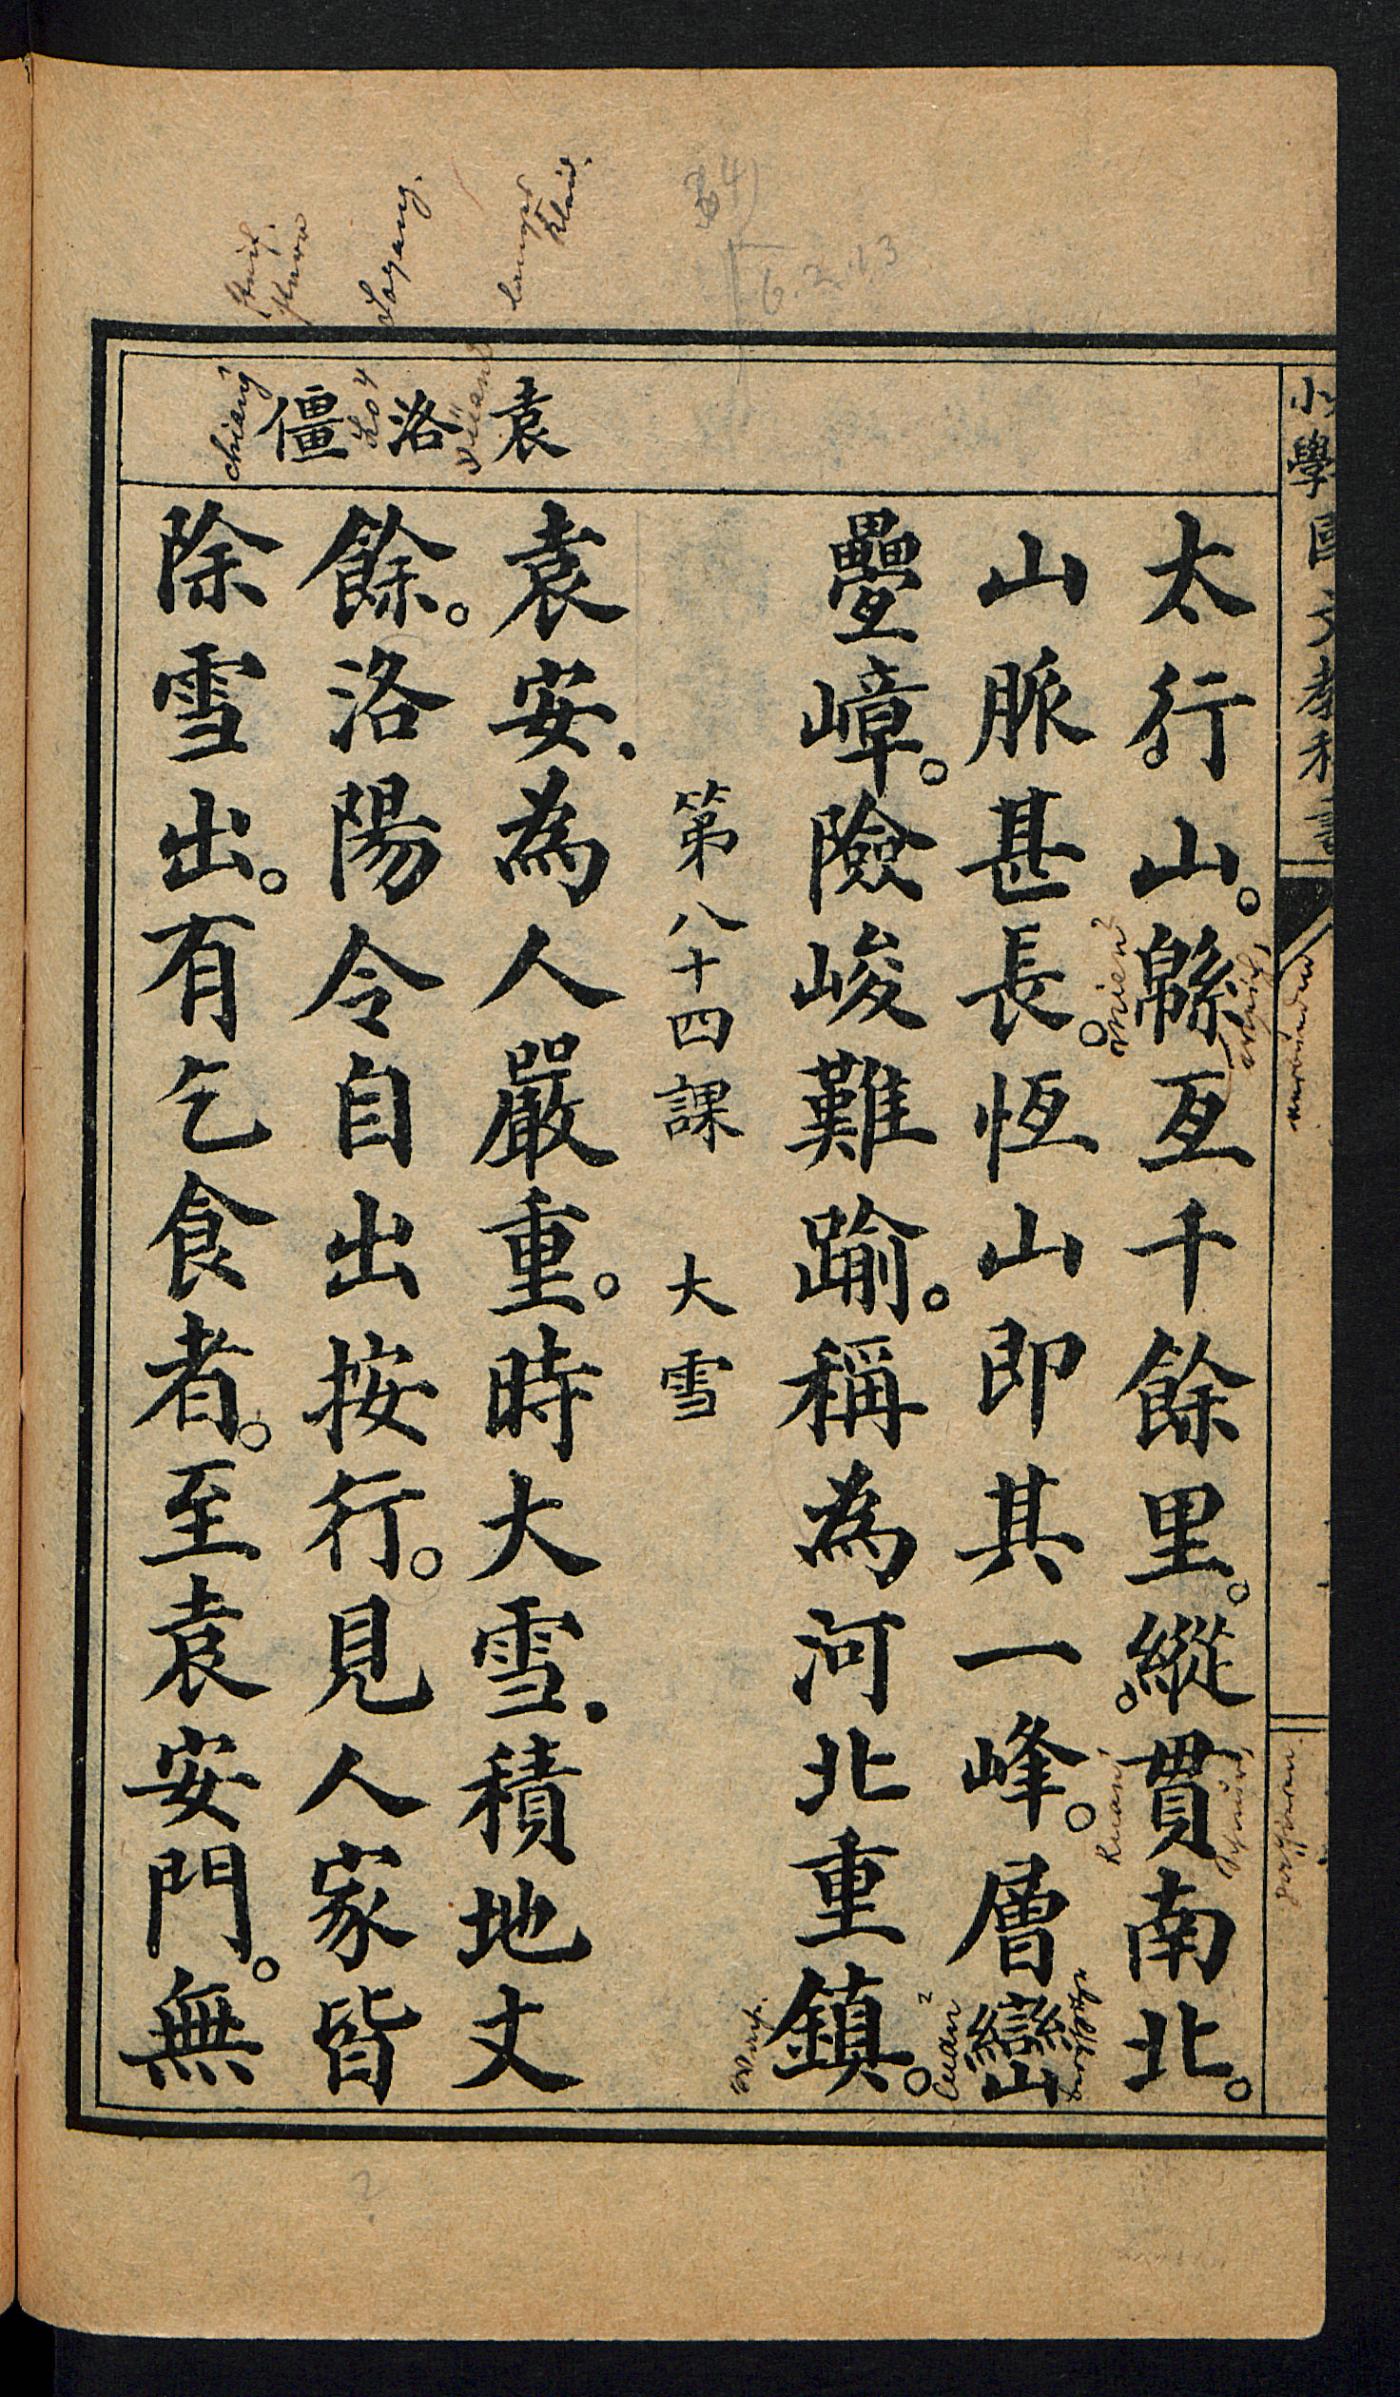 小學國文教科書
太行山。緜亙千餘里。縱貫南北。
山脈甚長。恆山即其一峰。層巒
疊嶂。險峻難踰。稱為河北重鎮。
第八十四課 大雪
袁 洛 僵
袁安．為人嚴重。時大雪．積地丈
餘。洛陽令自出按行。見人家皆
除雪出。有乞食者。至袁安門。無
Loyang.
chiang
Lo4
yüan
mien2
kuan
luan2
6.2.13